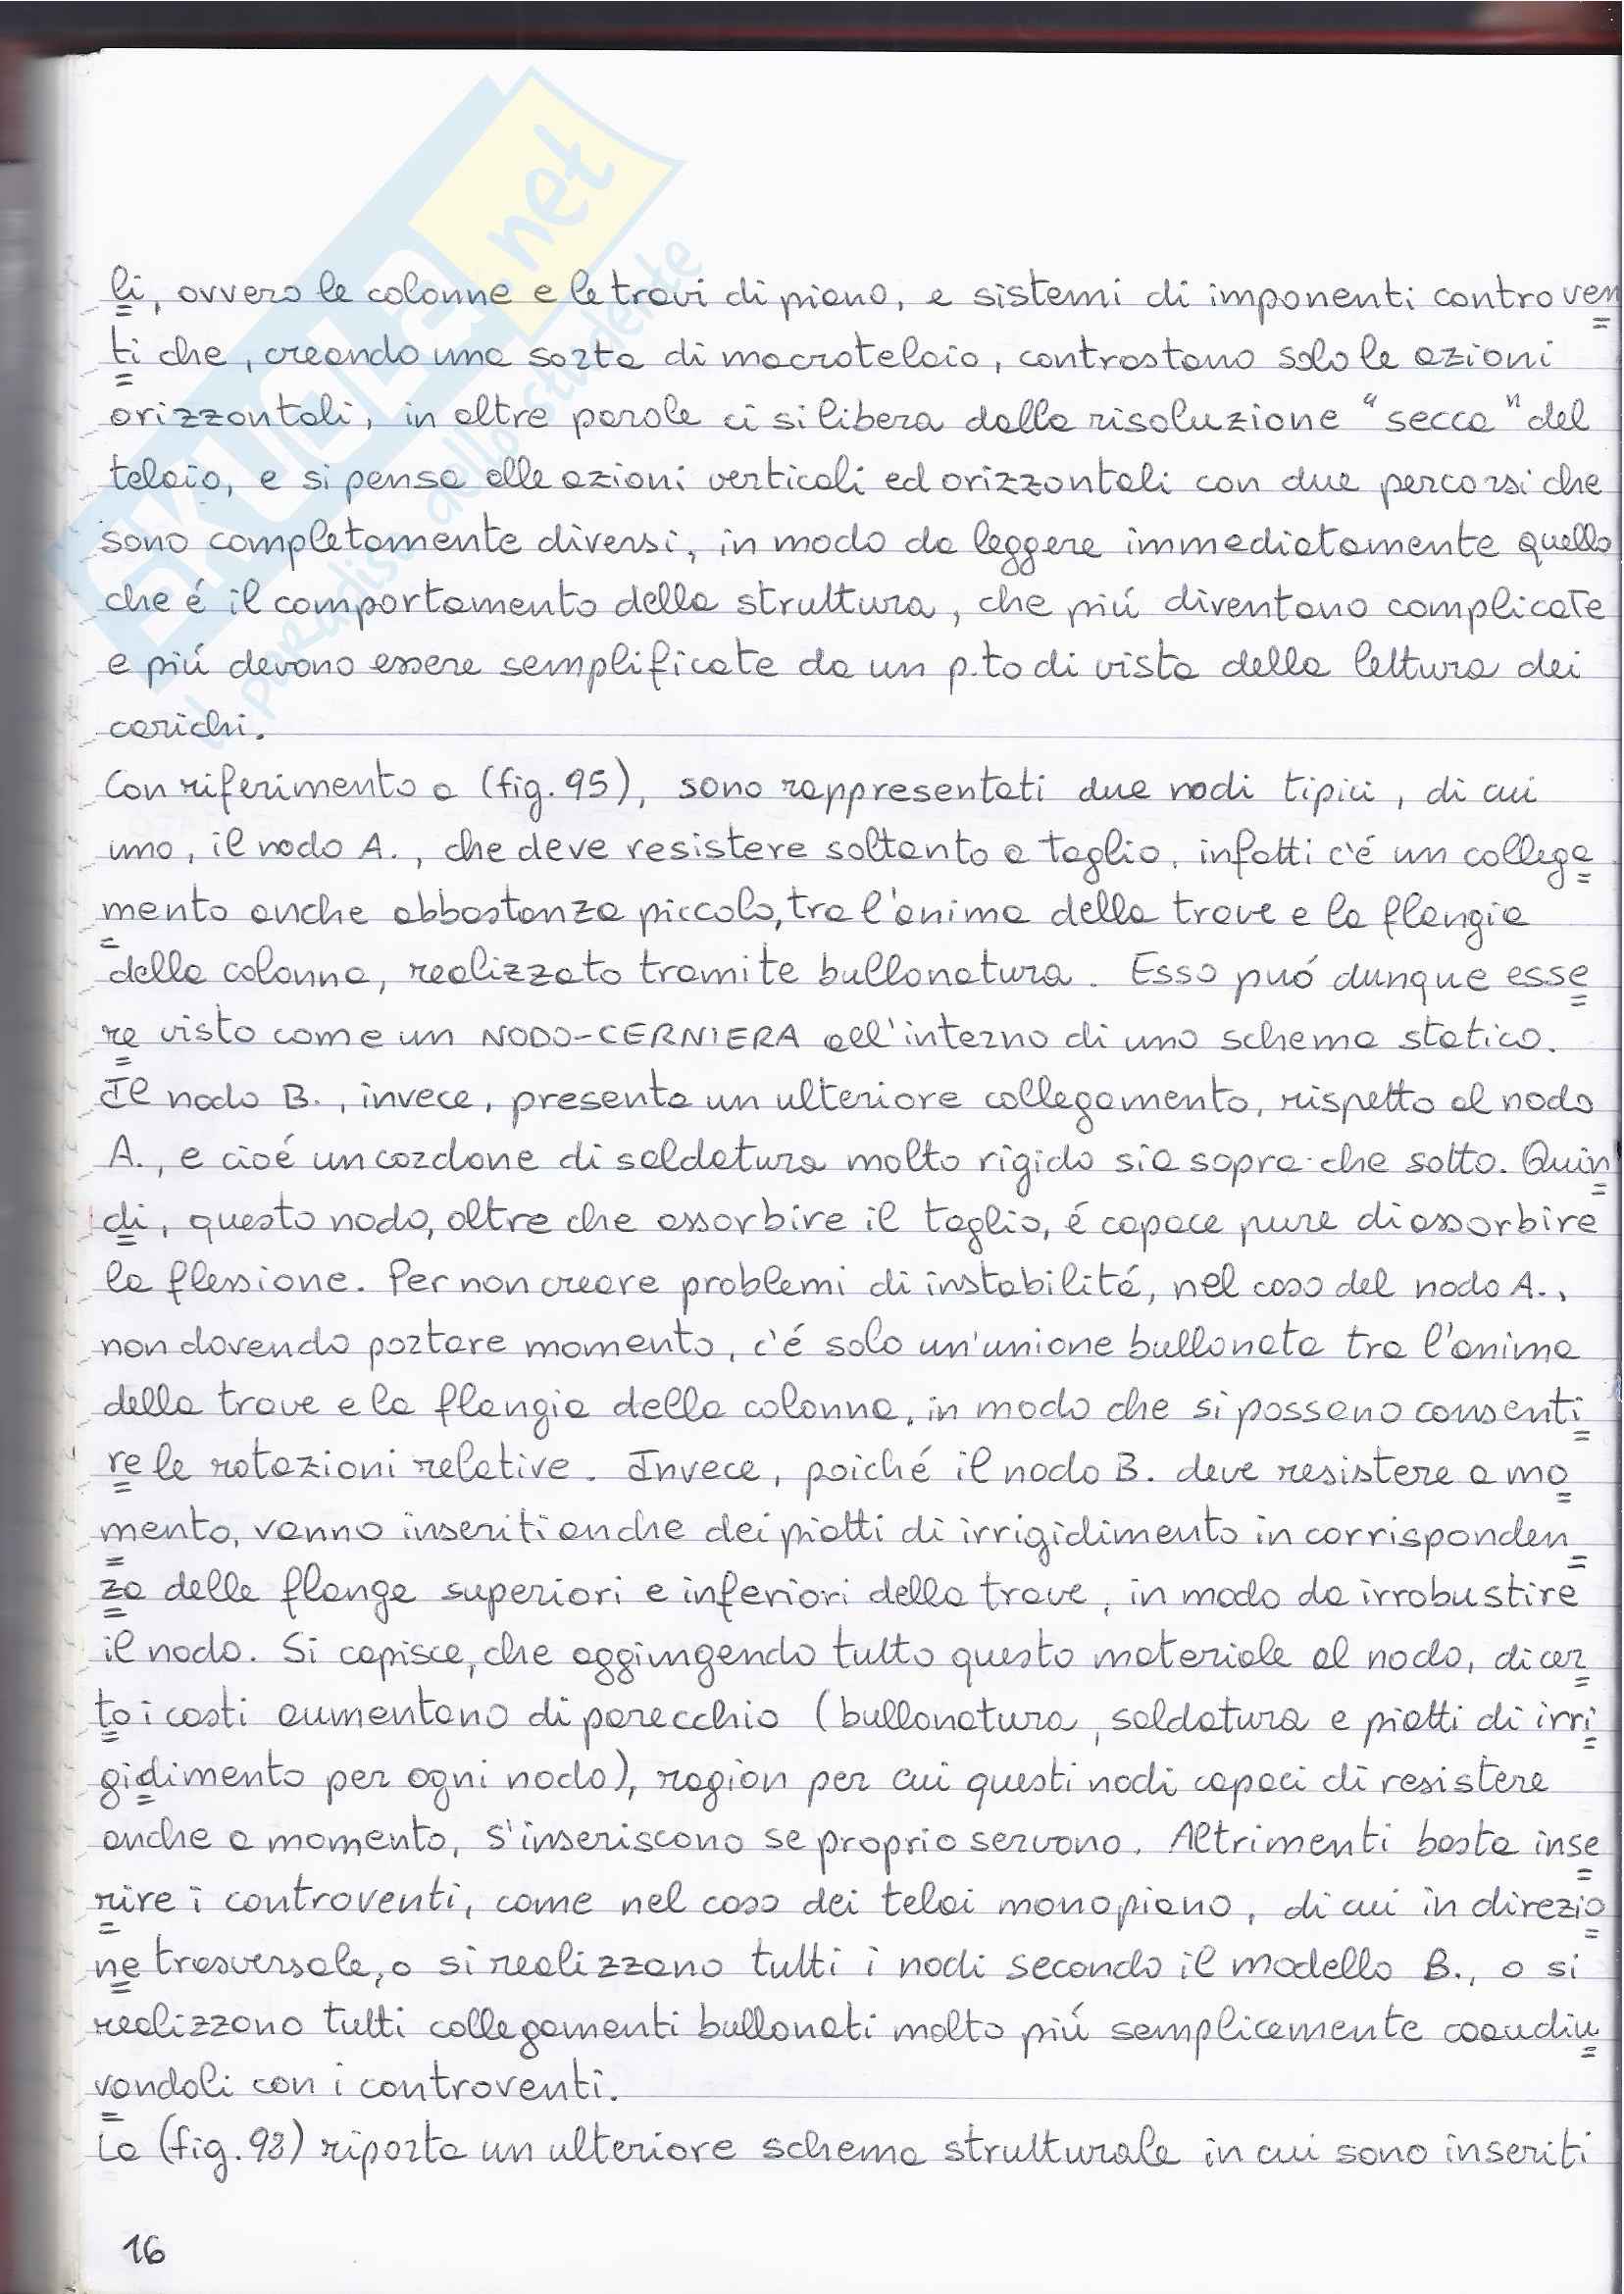 li, ovvero le colonne e le travi di piano, e sistemi di imponenti controven
ti che, creando una sorta di macrotelaio, contrastano solo le azioni
orizzontali, in altre parole ci si libera dalla risoluzione "secca" del
telaio, e si pensa alle azioni verticali ed orizzontali con due percorsi che
sono completamente diversi, in modo da leggere immediatamente quello
che é il comportamento della struttura, che piú diventano complicate
e piú devono essere semplificate da un p.to di vista della lettura dei
carichi.
Con riferimento a (fig. 95), sono rappresentati due nodi tipici, di cui
uno, il nodo A., che deve resistere soltanto a taglio, infatti c'é un collega
mento anche abbastanza piccolo, tra l'anima della trave e la flangia
della colonna, realizzato tramite bullonatura. Esso puó dunque esse
re visto come un NODO-CERNIERA all'interno di uno schema statico.
Il nodo B., invece, presenta un ulteriore collegamento, rispetto al nodo
A., e cioé un cordone di saldatura molto rigido sia sopra che sotto. Quin
di, questo nodo, oltre che assorbire il taglio, é capace pure di assorbire
la flessione. Per non creare problemi di instabilitá, nel caso del nodo A.,
non dovendo portare momento, c'é solo un'unione bullonata tra l'anima
della trave e la flangia della colonna, in modo che si possano consenti
re le rotazioni relative. Invece, poiché il nodo B. deve resistere a mo
mento, vanno inseriti anche dei piatti di irrigidimento in corrisponden
za delle flange superiori e inferiori della trave, in modo da irrobustire
il nodo. Si capisce, che aggiungendo tutto questo materiale al nodo, di cer
to i costi aumentano di parecchio (bullonatura, saldatura e piatti di irri
gidimento per ogni nodo), ragion per cui questi nodi capaci di resistere
anche a momento, s'inseriscono se proprio servono. Altrimenti basta inse
rire i controventi, come nel caso dei telai monopiano, di cui in direzio
ne trasversale, o si realizzano tutti i nodi secondo il modello B., o si
realizzano tutti collegamenti bullonati molto piú semplicemente coaudiu
vandoli con i controventi.
La (fig. 93) riporta un ulteriore schema strutturale in cui sono inseriti
16
SKUOLA.net
il paradiso dello studente